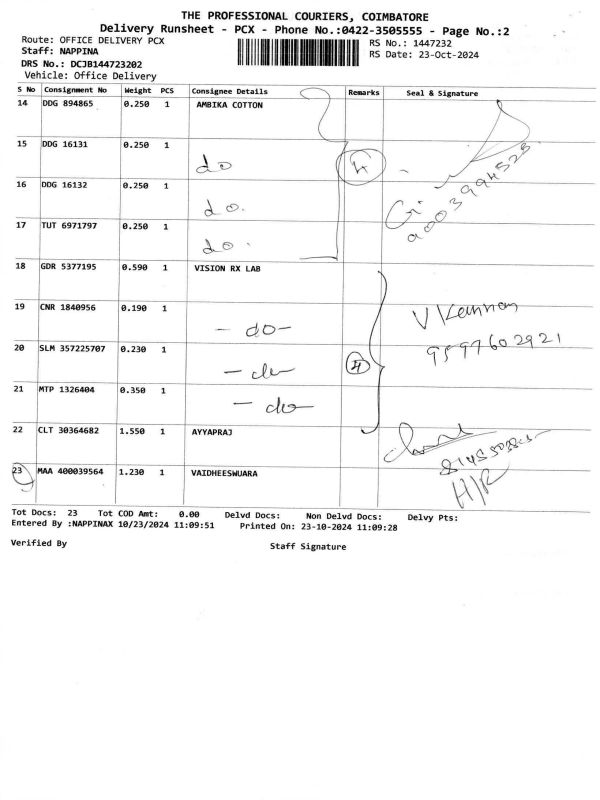 THE PROFESSIONAL COURIERS, COIMBATORE
Delivery Runsheet - PCX - Phone No.:0422-3505555 - Page No.:2
Route: OFFICE DELIVERY PCX RS No.: 1447232
Staff: NAPPINA RS Date: 23-Oct-2024
DRS No.: DCJB144723202
Vehicle: Office Delivery
S No Consignment No Weight PCS Consignee Details Remarks Seal & Signature
14 DDG 894865 0.250 1 AMBIKA COTTON
15 DDG 16131 0.250 1 do 4
16 DDG 16132 0.250 1 do.
17 TUT 6971797 0.250 1 do.
18 GDR 5377195 0.590 1 VISION RX LAB
19 CNR 1840956 0.190 1 - do - V Kannan
20 SLM 357225707 0.230 1 - do 4 9597602921
21 MTP 1326404 0.350 1 - do
22 CLT 30364682 1.550 1 AYYAPRAJ
23 MAA 400039564 1.230 1 VAIDHEESWUARA H/R
Tot Docs: 23 Tot COD Amt: 0.00 Delvd Docs: Non Delvd Docs: Delvy Pts:
Entered By :NAPPINAX 10/23/2024 11:09:51 Printed On: 23-10-2024 11:09:28
Verified By Staff Signature